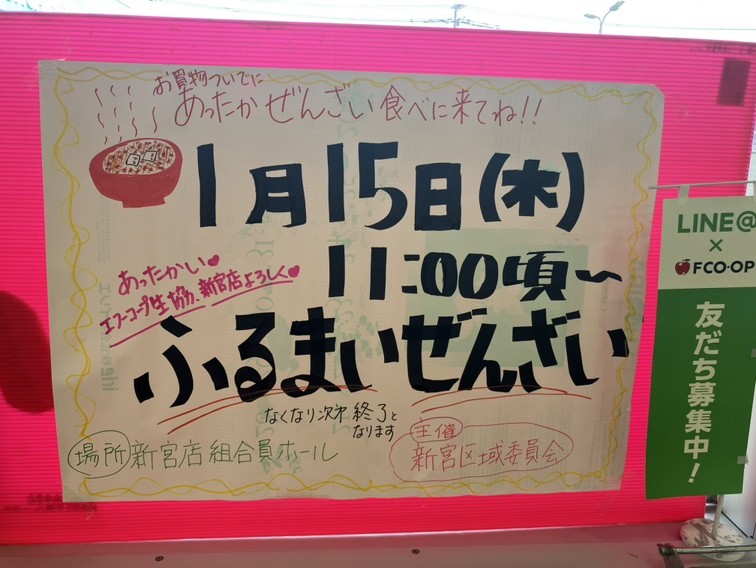 お買物ついでに
あったか ぜんざい 食べに来てね!!
1月15日(木)
11:00頃～
あったかい♥
エフコープ生協、新宮店よろしく♥
ふるまいぜんざい
なくなり次第 終了と
なります
場所 新宮店 組合員ホール
主催
新宮区域委員会
LINE@
×
FCO・OP
友だち募集中!